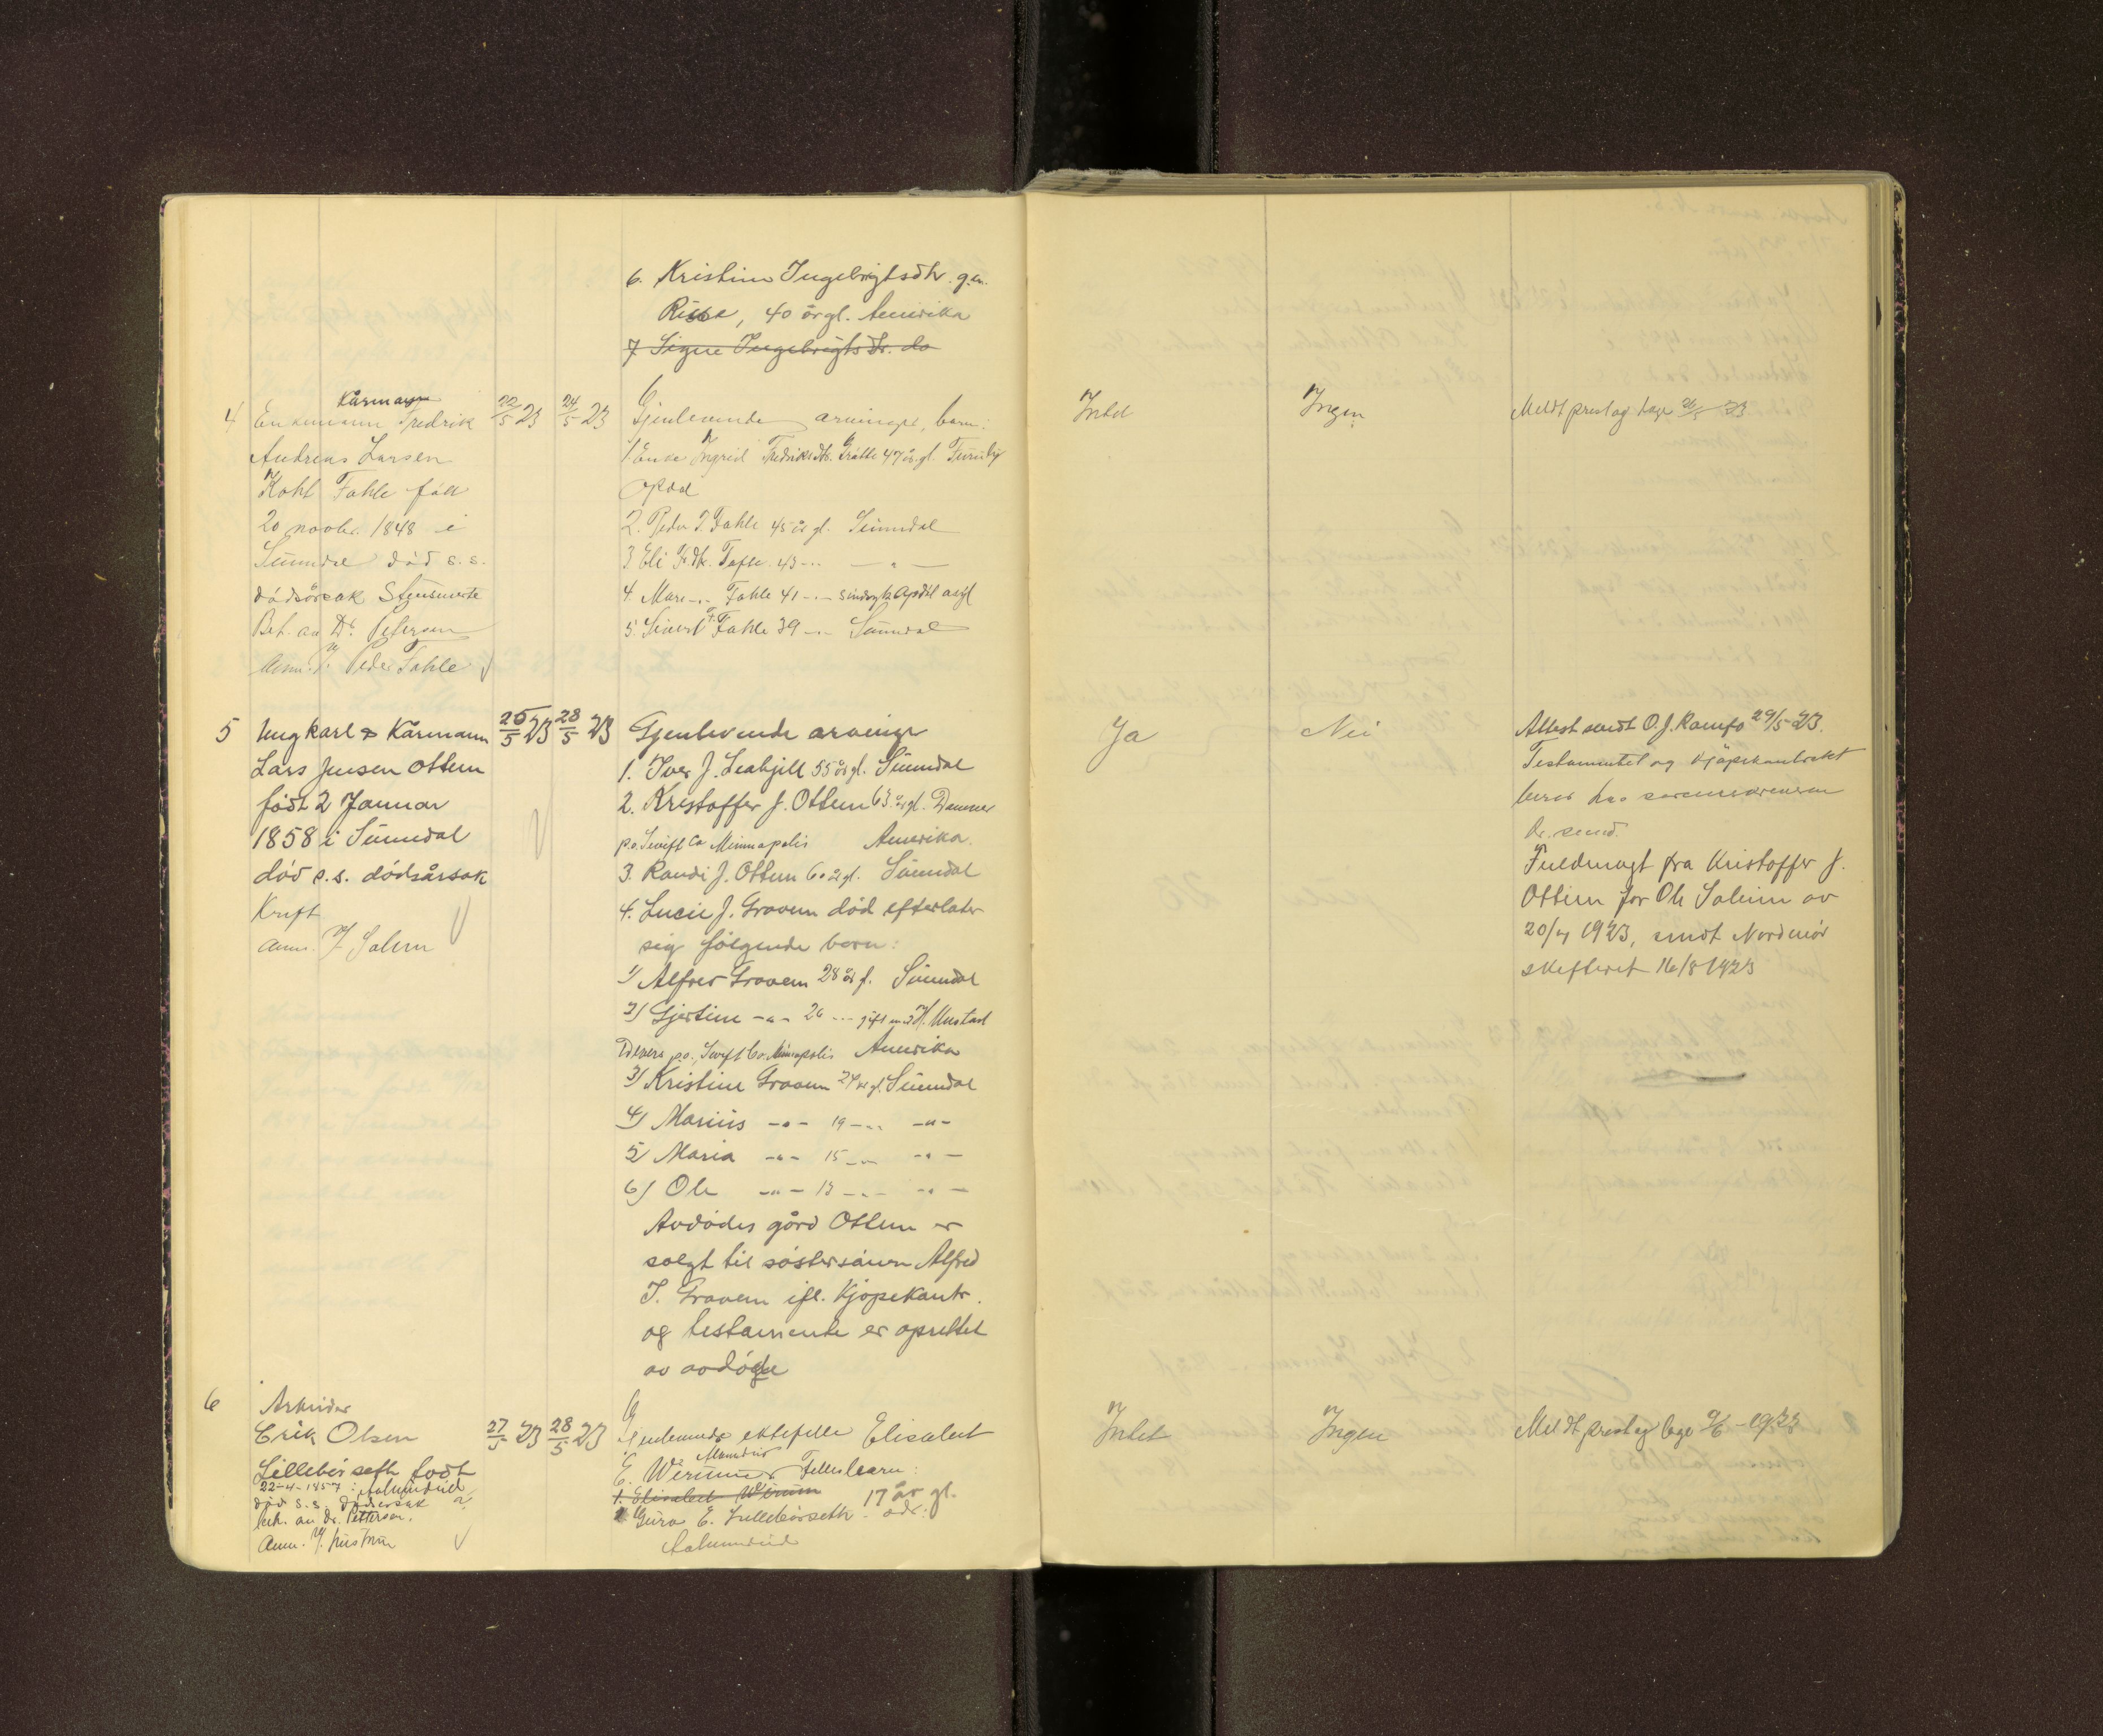 6. Kristine Ingebrigtsdtr. gm.
Riise, 40 år gl. Amerika
7. Signe Ingebrigtsdtr. do
4
Kårmann
Enkemann Fredrik
Andreas Larsen
Fahle født
20 novbr. 1848 i
Sunndal død s.s.
dødsårsak
Beh. av Dr. Petersen
Anm. Peder Fahle
22/5 23
24/5 23
Gjenlevende arvinger, barn:
1 Enke Ingrid Fredriksdtr. 47 år gl.
Opdal
2. Peder F. Fahle 45 år gl. Sunndal
3 Eli Fr.dtr. Fahle 43 -"- — " —
4. Mari -"- Fahle 41 -"- Opdal
5. Sivert F. Fahle 39 -"- Sunndal
Intet
Ingen
Meldt prest og lege 26/5 23
5
Ungkarl & Kårmann
Lars Jensen Ottem
født 2 Januar
1858 i Sunndal
død s.s. dødsårsak
Kreft
Anm. J Salem
25/5 23
28/5 23
Gjenlevende arvinger
1. Iver J. Leakjell 55 år gl. Sunndal
2. Kristoffer J. Ottem 63 år gl.
p.o. Swift Co Minnapolis Amerika.
3. Randi J. Ottem 60 år gl. Sunndal
4. Lucie J. Gravem død efterlater
sig følgende barn:
1) Alfred Gravem 28 år g. Sunndal
2) Gjertine -"- 26 -"- gift m. H. Mustad
p.o., Swift Co. Minnapolis Amerika
3) Kristine Gravem 24 år gl. Sunndal
4) Marius -"- 19 -"- -"-
5) Maria -"- 15 -"- -"-
6) Ole -"- 13 -"- -"-
Avdødes gård Ottem er
solgt til søstersønnen Alfred
I. Gravem ifl. Kjøpekontr.
og testamente er oprettet
av avdøde
Ja
Nei
Attest sendt O. J. Ramfo 29/5-23.
Testamentet og Kjøpekontraktet
beror hos sorenskriveren
Fuldmagt fra Kristoffer J.
Ottem for Ole Salem av
20/7 1923, sendt Nordmør
skifteret 16/8 1923
6
Arbeider
Erik Olsen
Lillebørseth født
22-4-1857 i Aalmundeid
død s.s. Dødsårsak ?
beh. av dr. Petterson.
Anm.
27/5 23
28/5 23
Gjenlevende ektefelle Elisabet
E. Fellesbarn:
1. Elisabet
Guro E. Lillebørseth 17 år gl.
Aalmundeid
Intet
Ingen
Meldt prest og lege 9/6-1923